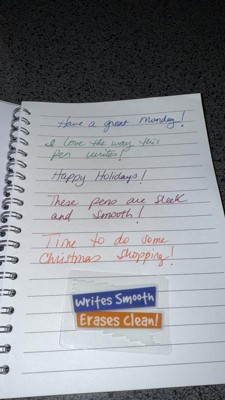 Have a great Monday!
I love the way this
pen writes!
Happy Holidays!
These pens are sleek
and smooth!
Time to do some
Christmas shopping!
Writes Smooth
Erases Clean!